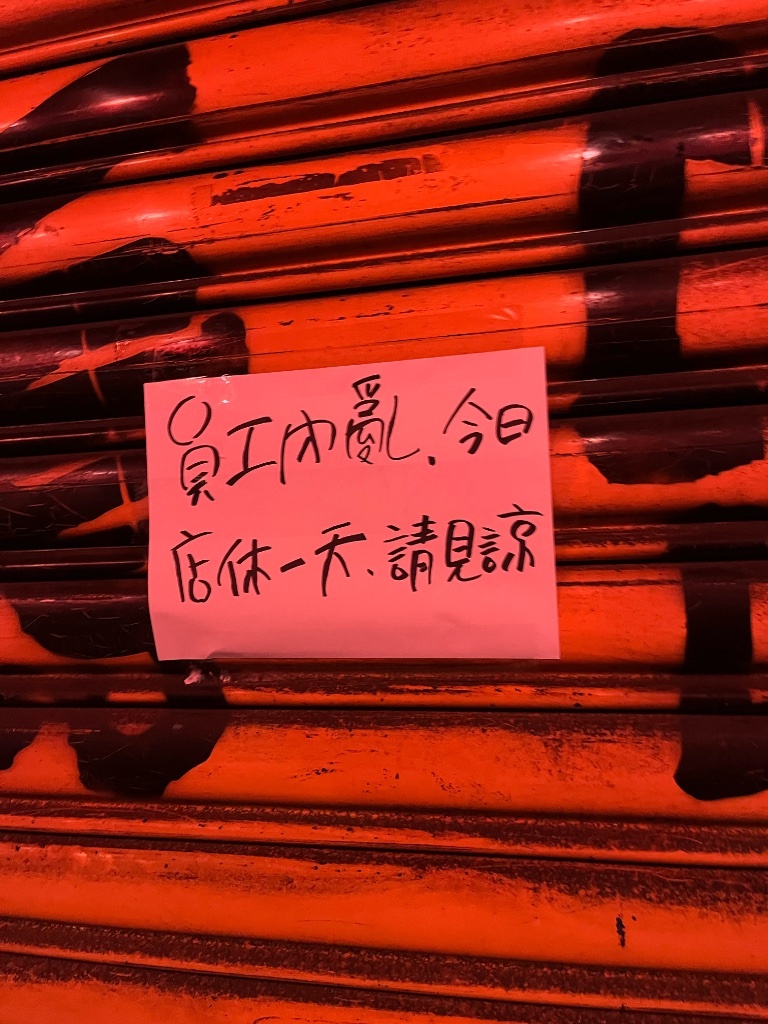 員工內亂.今日
店休一天、請見諒